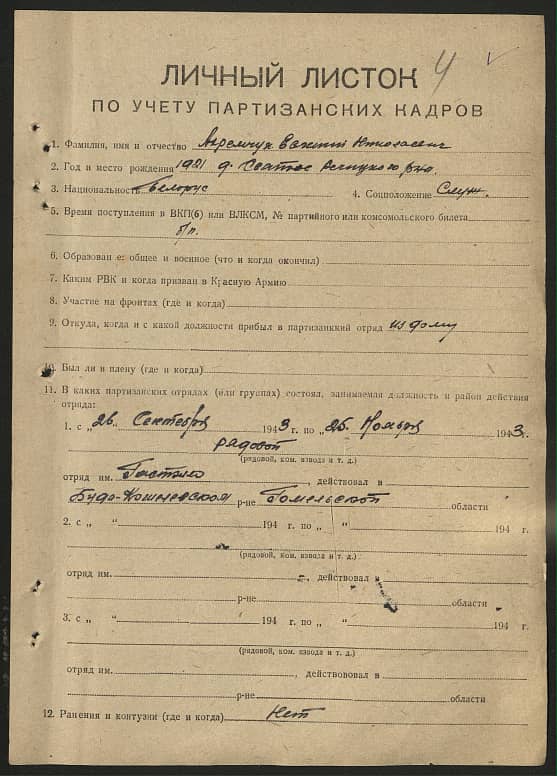 4
ЛИЧНЫЙ ЛИСТОК
ПО УЧЕТУ ПАРТИЗАНСКИХ КАДРОВ
1. Фамилия, имя и отчество
2. Год и место рождения 1921 д.
3. Национальность Белорус 4. Соцположение Служ.
5. Время поступления в ВКП(б) или ВЛКСМ, № партийного или комсомольского билета
б/п.
6. Образование: общее и военное (что и когда окончил)
7. Каким РВК и когда призван в Красную Армию
8. Участие на фронтах (где и когда)
9. Откуда, когда и с какой должности прибыл в партизанкий отряд из дому
10. Был ли в плену (где и когда)
11. В каких партизанских отрялах (или группах) состоял, занимаемая должность и район действия
отряда:
1. с „26“ Сентября 1943 г. по „25“ Ноября 1943 г.
рядовой
(рядовой, ком. взвода и т. д.)
отряд им. Гастелло, действовал в
Буда-Кошелевском р-не Гомельской области
2. с „ “ 194 г. по „ “ 194 г.
(рядовой, ком. взвода и т. д.)
отряд им. , действовал в
р-не области
3. с „ “ 194 г. по „ “ 194 г.
(рядовой, ком. взвода и т. д.)
отряд им. , действововал в
р-не области
12. Ранения и контузии (где и когда) Нет